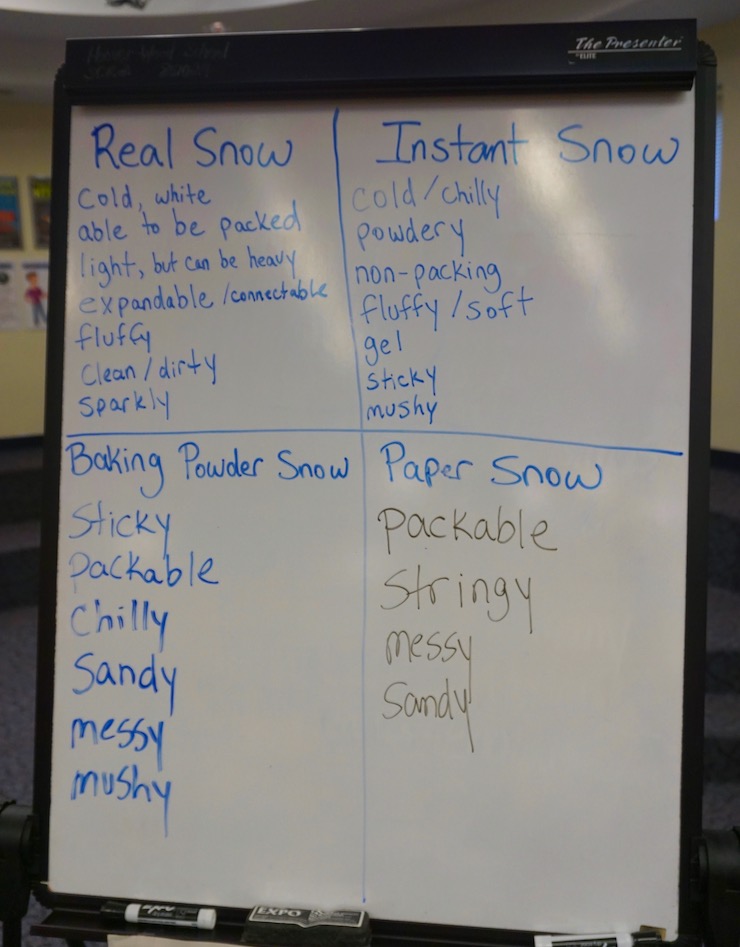 The Presenter
ELITE
Real Snow
Cold, white
able to be packed
light, but can be heavy
expandable/connectable
fluffy
Clean/dirty
Sparkly
Instant Snow
cold/chilly
powdery
non-packing
fluffy/soft
gel
sticky
mushy
Baking Powder Snow
Sticky
packable
Chilly
Sandy
messy
mushy
Paper Snow
packable
Stringy
messy
Sandy
EXPO
EXPO